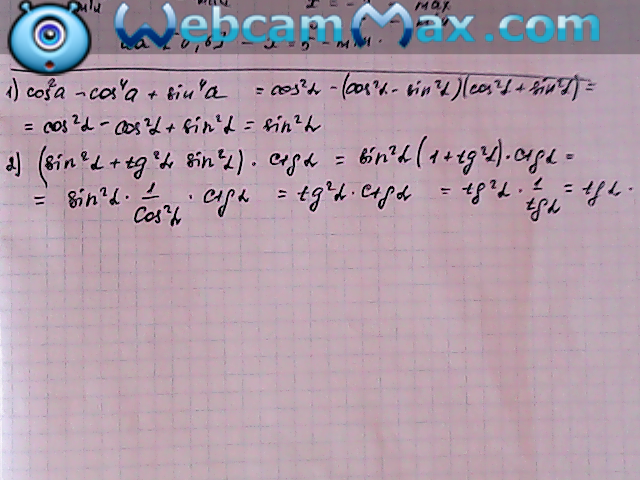 WebcamMax.com
1) cos²a − cos⁴a + sin⁴a = cos²α − (cos²α − sin²α)(cos²α + sin²α) =
= cos²α − cos²α + sin²α = sin²α
2) (sin²α + tg²α sin²α) · ctgα = sin²α(1 + tg²α) · ctgα =
= sin²α · 1/cos²α · ctgα = tg²α · ctgα = tg²α · 1/tgα = tgα ·